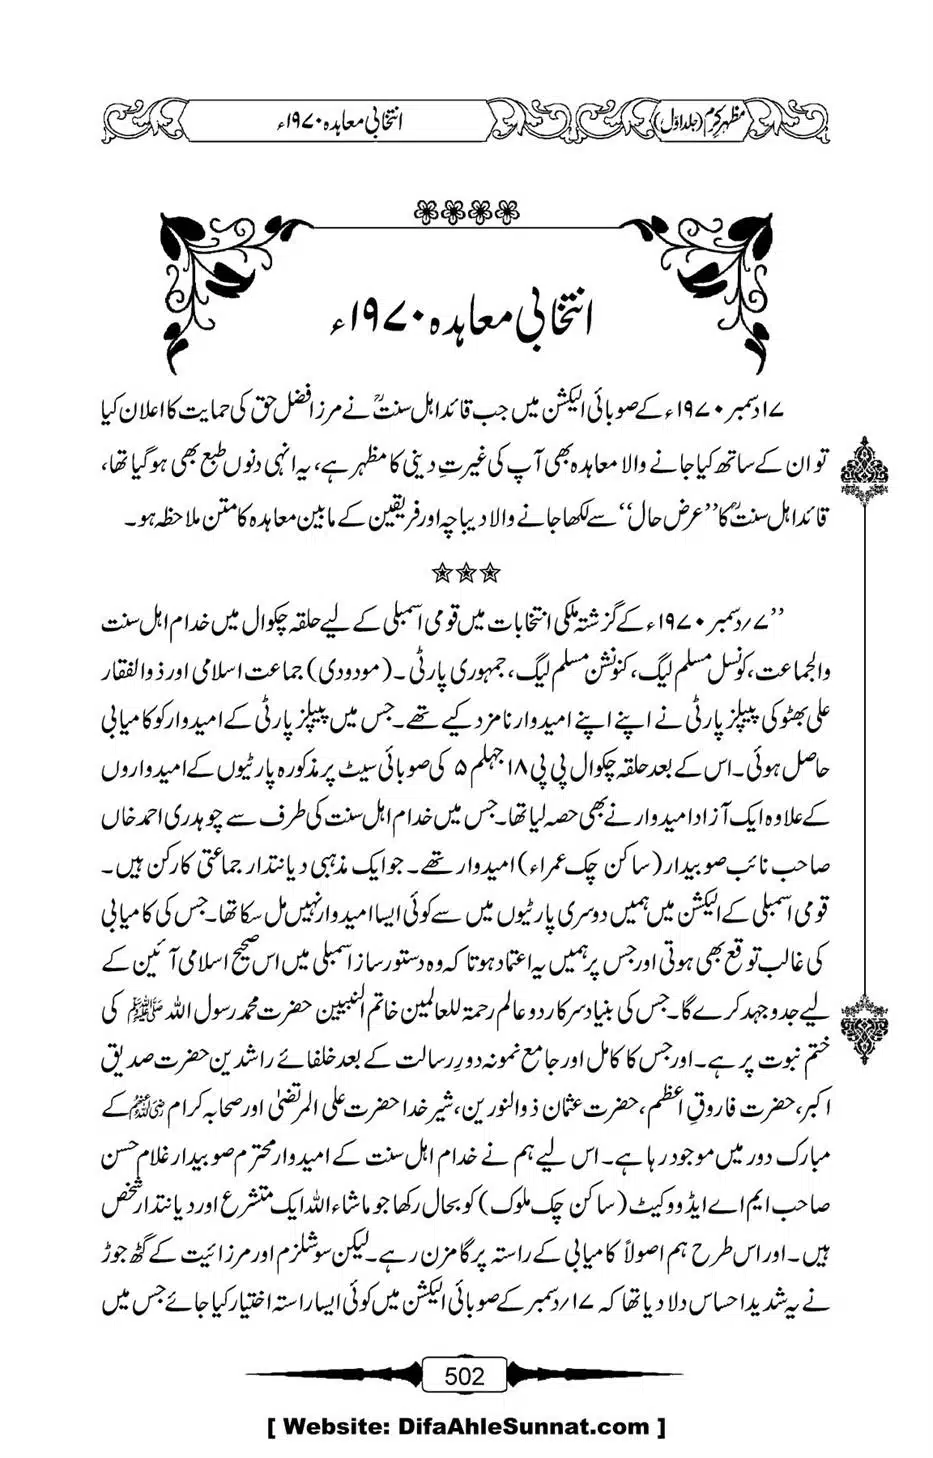 مظہر کرم (جلد اوّل)
انتخابی معاہدہ ۱۹۷۰ء
انتخابی معاہدہ ۱۹۷۰ء
۱۷ دسمبر ۱۹۷۰ء کے صوبائی الیکشن میں جب قائد اہل سنتؒ نے مرزا فضل حق کی حمایت کا اعلان کیا
تو ان کے ساتھ کیا جانے والا معاہدہ بھی آپ کی غیرتِ دینی کا مظہر ہے، یہ انہی دنوں طبع بھی ہوگیا تھا،
قائد اہل سنتؒ کا ’’عرض حال‘‘ سے لکھا جانے والا دیباچہ اور فریقین کے مابین معاہدہ کا متن ملاحظہ ہو۔
’’۷؍دسمبر ۱۹۷۰ء کے گزشتہ ملکی انتخابات میں قومی اسمبلی کے لیے حلقہ چکوال میں خدام اہل سنت
والجماعت، کونسل مسلم لیگ، کنونشن مسلم لیگ، جمہوری پارٹی۔ (مودودی) جماعت اسلامی اور ذوالفقار
علی بھٹو کی پیپلز پارٹی نے اپنے اپنے امیدوار نامزد کیے تھے۔ جس میں پیپلز پارٹی کے امیدوار کو کامیابی
حاصل ہوئی۔ اس کے بعد حلقہ چکوال پی پی ۱۸ جہلم ۵ کی صوبائی سیٹ پر مذکورہ پارٹیوں کے امیدواروں
کے علاوہ ایک آزاد امیدوار نے بھی حصہ لیا تھا۔ جس میں خدام اہل سنت کی طرف سے چوہدری احمد خاں
صاحب نائب صوبیدار (ساکن چک عمراء) امیدوار تھے۔ جو ایک مذہبی دیانتدار جماعتی کارکن ہیں۔
قومی اسمبلی کے الیکشن میں ہمیں دوسری پارٹیوں میں سے کوئی ایسا امیدوار نہیں مل سکا تھا۔ جس کی کامیابی
کی غالب توقع بھی ہوتی اور جس پر ہمیں یہ اعتماد ہوتا کہ وہ دستور ساز اسمبلی میں اس صحیح اسلامی آئین کے
لیے جدوجہد کرے گا۔ جس کی بنیاد سرکار دو عالم رحمۃ للعالمین خاتم النبیین حضرت محمد رسول اللہ ﷺ کی
ختم نبوت پر ہے۔ اور جس کا کامل اور جامع نمونہ دورِ رسالت کے بعد خلفائے راشدین حضرت صدیق
اکبر، حضرت فاروقِ اعظم، حضرت عثمان ذوالنورین، شیر خدا حضرت علی المرتضیٰ اور صحابہ کرام رضی اللہ عنہم کے
مبارک دور میں موجود رہا ہے۔ اس لیے ہم نے خدام اہل سنت کے امیدوار محترم صوبیدار غلام حسن
صاحب ایم اے ایڈووکیٹ (ساکن چک ملوک) کو بحال رکھا جو ماشاء اللہ ایک متشرع اور دیانتدار شخص
ہیں۔ اور اس طرح ہم اصولاً کامیابی کے راستہ پر گامزن رہے۔ لیکن سوشلزم اور مرزائیت کے گٹھ جوڑ
نے یہ شدید احساس دلا دیا تھا کہ ۱۷؍دسمبر کے صوبائی الیکشن میں کوئی ایسا راستہ اختیار کیا جائے جس میں
502
[ Website: DifaAhleSunnat.com ]